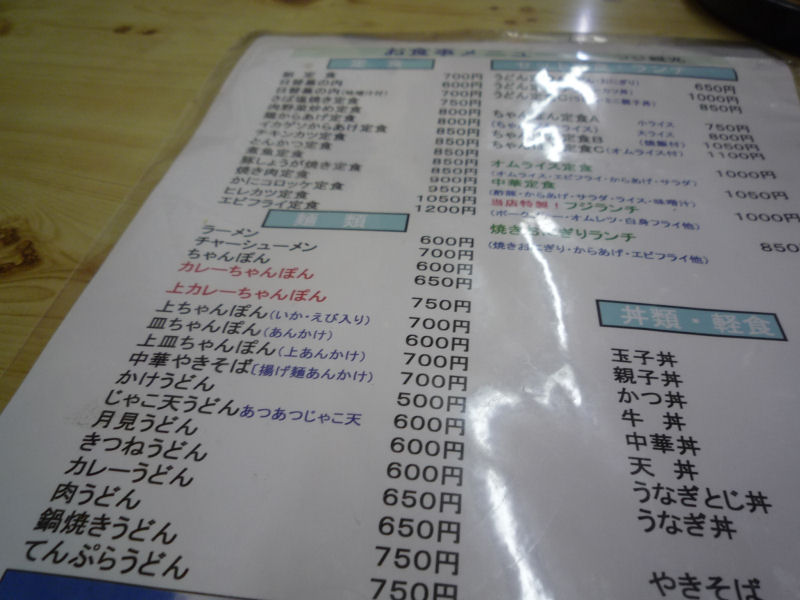 お食事メニュー
定 食
定 食 700円
600円
(味噌汁付) 700円
さば塩焼き定食 750円
肉野菜炒め定食 800円
鶏からあげ定食 800円
イカゲソからあげ定食 850円
チキンカツ定食 850円
とんかつ定食 850円
煮魚定食 850円
豚しょうが焼き定食 850円
焼き肉定食 900円
かにコロッケ定食 950円
ヒレカツ定食 1050円
エビフライ定食 1200円
麺 類
ラーメン 600円
チャーシューメン 700円
ちゃんぽん 600円
カレーちゃんぽん 650円
上カレーちゃんぽん 750円
上ちゃんぽん(いか・えび入り) 700円
皿ちゃんぽん(あんかけ) 600円
上皿ちゃんぽん(上あんかけ) 700円
中華やきそば(揚げ麺あんかけ) 700円
かけうどん 500円
じゃこ天うどんあつあつじゃこ天 600円
月見うどん 600円
きつねうどん 600円
カレーうどん 650円
肉うどん 650円
鍋焼きうどん 750円
てんぷらうどん 750円
ランチ
うどん おにぎり) 650円
うどん カツ丼) 1000円
うどん定 ミニ親子丼) 850円
ちゃんぽん定食A 小ライス 750円
(ちゃ ライス) 大ライス 800円
ちゃ 定食B (焼飯付) 1050円
ちゃ 定食C(オムライス付) 1100円
オムライス定食 1000円
(オムライス・エビフライ・からあげ・サラダ)
中華定食 1050円
(酢豚・からあげ・サラダ・ライス・味噌汁)
当店特製!フジランチ 1000円
(ポーク ー・オムレツ・白身フライ他)
焼きおにぎりランチ 850
(焼きおにぎり・からあげ・エビフライ他)
丼類・軽食
玉子丼
親子丼
かつ丼
牛 丼
中華丼
天 丼
うなぎとじ丼
うなぎ丼
やきそば